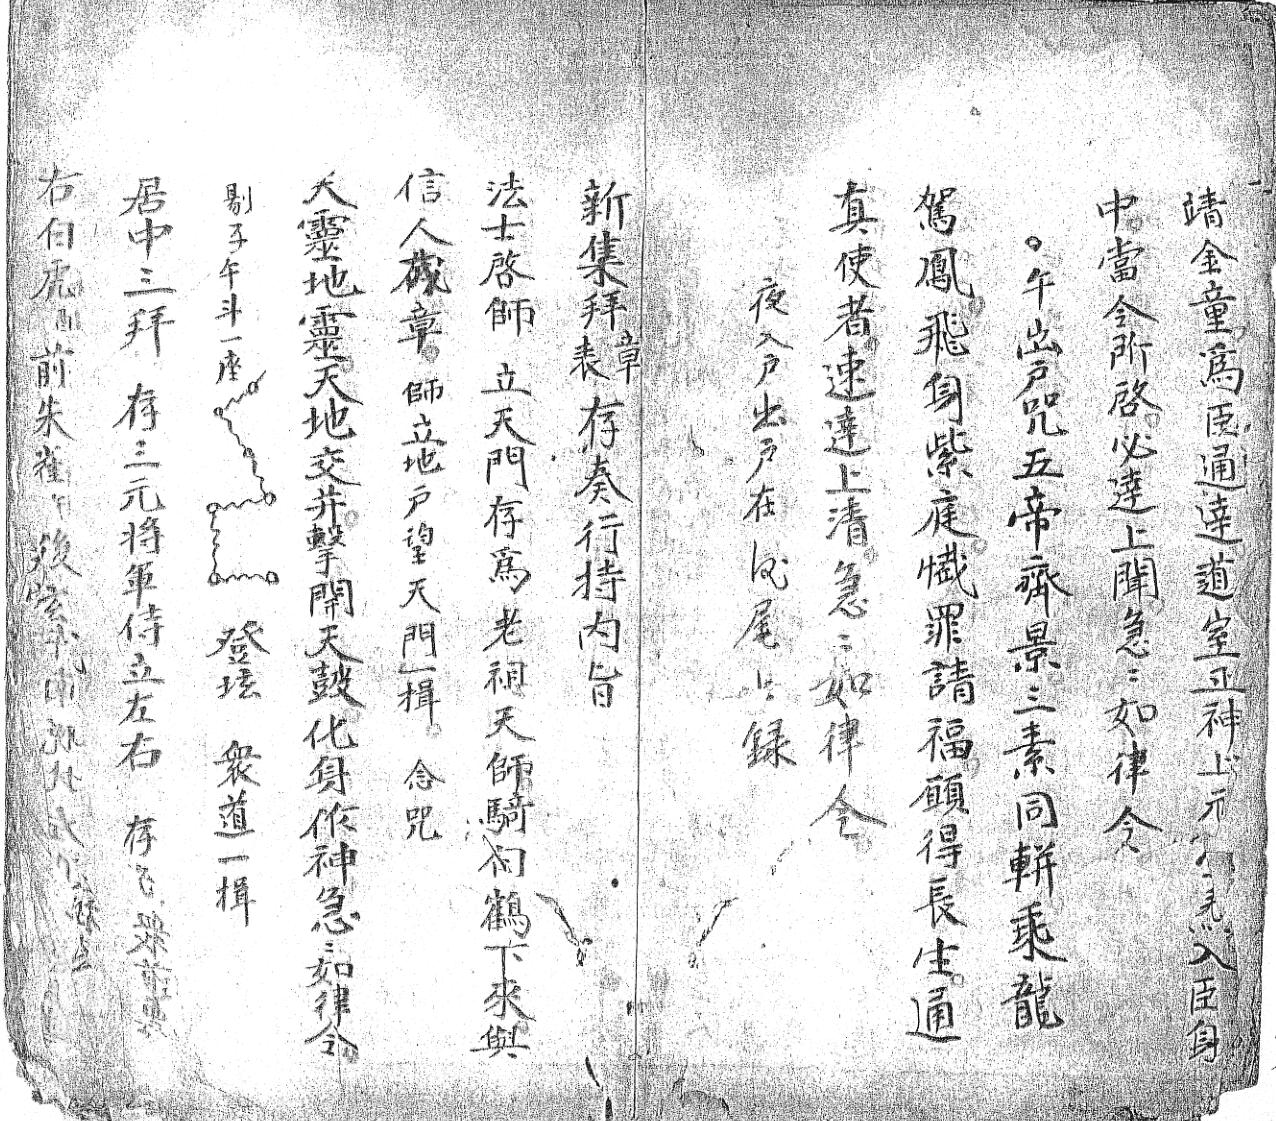 靖金童爲臣通達道室正神上元入臣身
中當令所啓必達上聞急〻如律令
午出戶咒五帝齊景三素同軿乘龍
駕鳳飛身紫庭懺罪請福願得長生通
真使者速達上清急〻如律令
夜入戶出戶在尾上録
新集拜章表存奏行持內旨
法士啓師 立天門存爲老祖天師騎白鶴下來與
信人章 師立地戶望天門一揖 念咒
天靈地靈天地交并擊開天鼓化身作神急〻如律令
剔子午斗一座 登壇 衆道一揖
居中三拜 存三元將軍侍立左右 存
右白虎酉前朱雀午後玄武